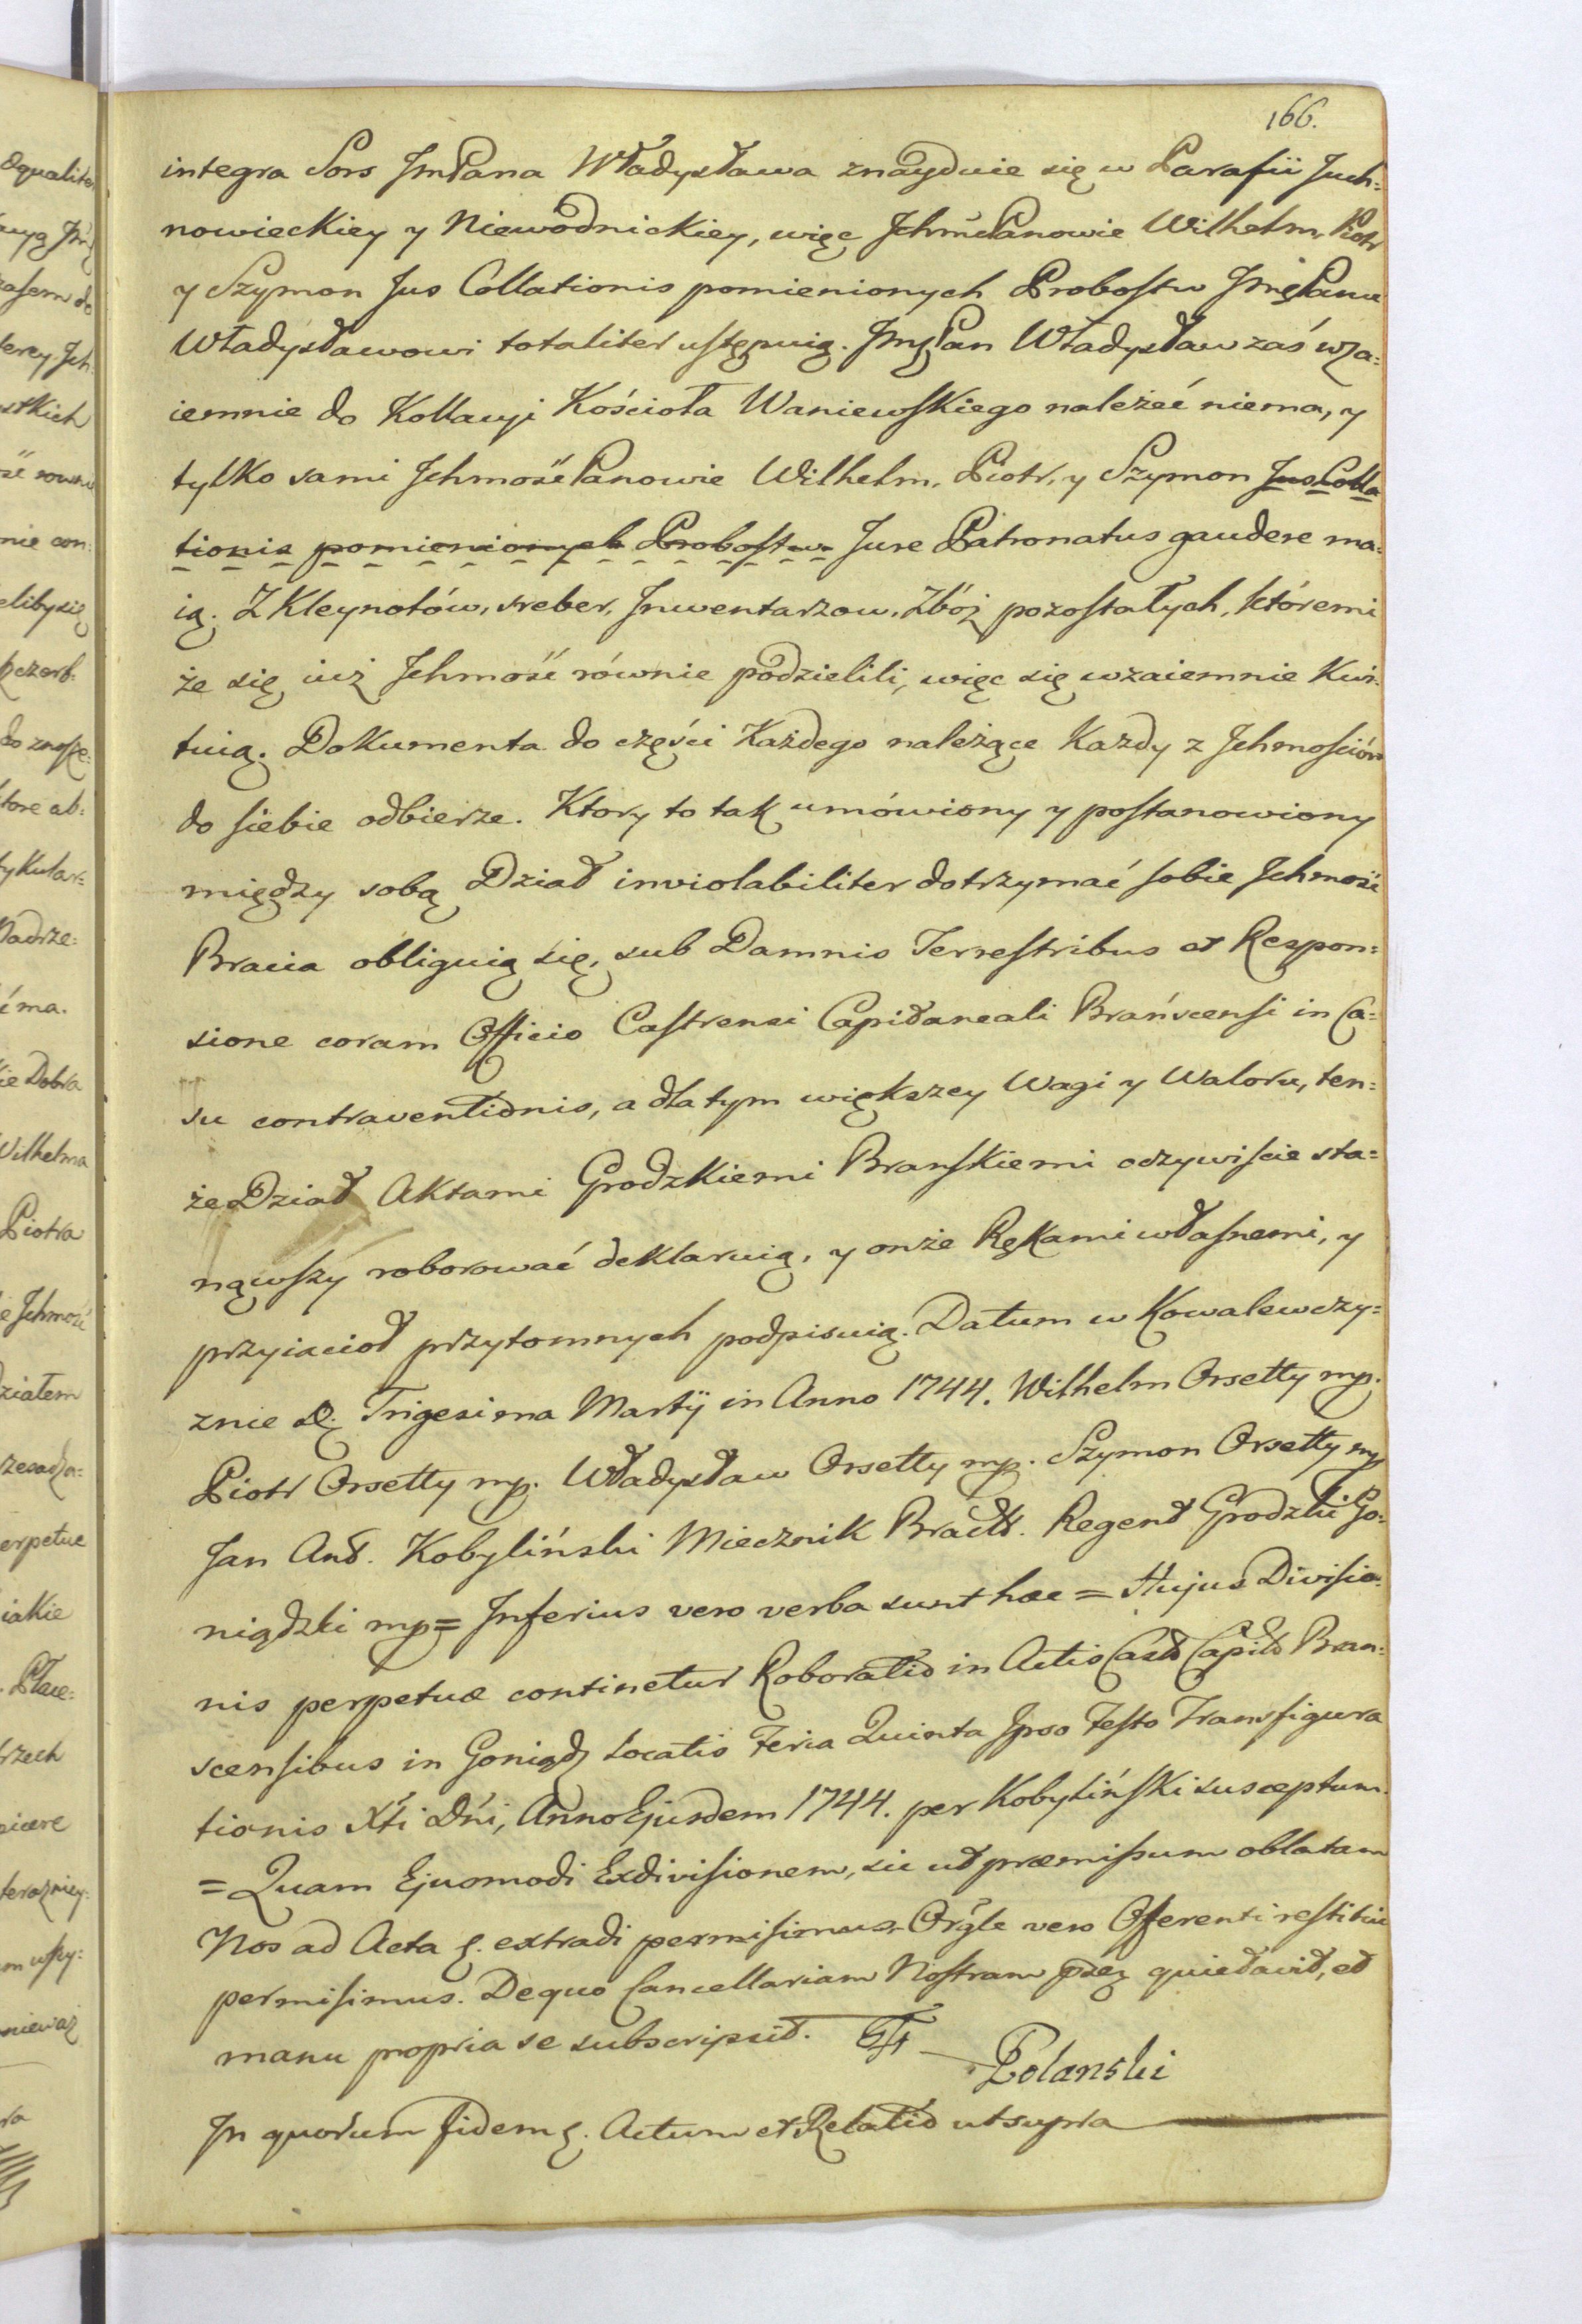 166.
integra Sors JmPana Władysława znayduie się w Parafii Juch=
nowieckiey y Niewodnickiey, więc JchmćPanowie Wilhelm, Piotr
y Szymon Jus Collationis pomienionych Probostw JmęPanu
Władysławowi totaliter ustępuią. JmęPan Władysław zaś wza=
iemnie do Kollacyi Kościoła Waniewskiego należeć niema, y
tylko sami JchmośćPanowie Wilhelm, Piotr, y Szymon Jus Colla
tionis pomienionych Probostw Jure Patronatus gaudere ma=
ią. Z Kleynotów, sreber, Inwentarzow, Zbóż pozostałych, któremi
że się iuż Jchmość równie podzielili, więc się wzaiemnie Kwi=
tuią. Dokumenta do części Każdego należące Kazdy z Jchmościów
do siebie odbierze. Ktory to tak umówiony y postanowiony
między sobą Dział inviolabiliter dotrzymać sobie Jchmość
Bracia obliguią się, sub Damnis Terrestribus et Respon=
sione coram Officio Castrensi Capitaneali Brańscensi in Ca=
su contraventionis, a dla tym większey Wagi y Waloru, ten=
że Dział Aktami Grodzkiemi Branskiemi oczywiście sta=
nąwszy roborować deklaruią, y onże Rękami własnemi, y
przyiacioł przytomnych podpisuią. Datum w Kowalewczy=
znie D. Trigesima Martij in Anno 1744. Wilhelm Orsetty mp.
Piotr Orsetty mp. Władysław Orsetty mp. Szymon Orsetty mp
Jan Ant. Kobyliński Miecznik Bracł. Regent Grodzki Go=
niądzki mp = Inferius vero verba sunt hæc = Hujus Divisio=
nis perpetuæ continetur Roboratio in Actis Cast Capit Bran=
scensibus in Goniądz Locatis Feria Quinta Ipso Festo Transfigura
tionis Xti Dni, Anno Ejusdem 1744. per Kobyliński susceptum.
= Quam Ejusmodi Exdivisionem, sic ut præmissum oblatam
Nos ad Acta extradi permisimus. Origle vero Offerenti restitui
permisimus. De quo Cancellariam Nostram quietavit, et
manu propria se subscripsit.
Polanski
In quorum fidem Actum et Relatio ut supra